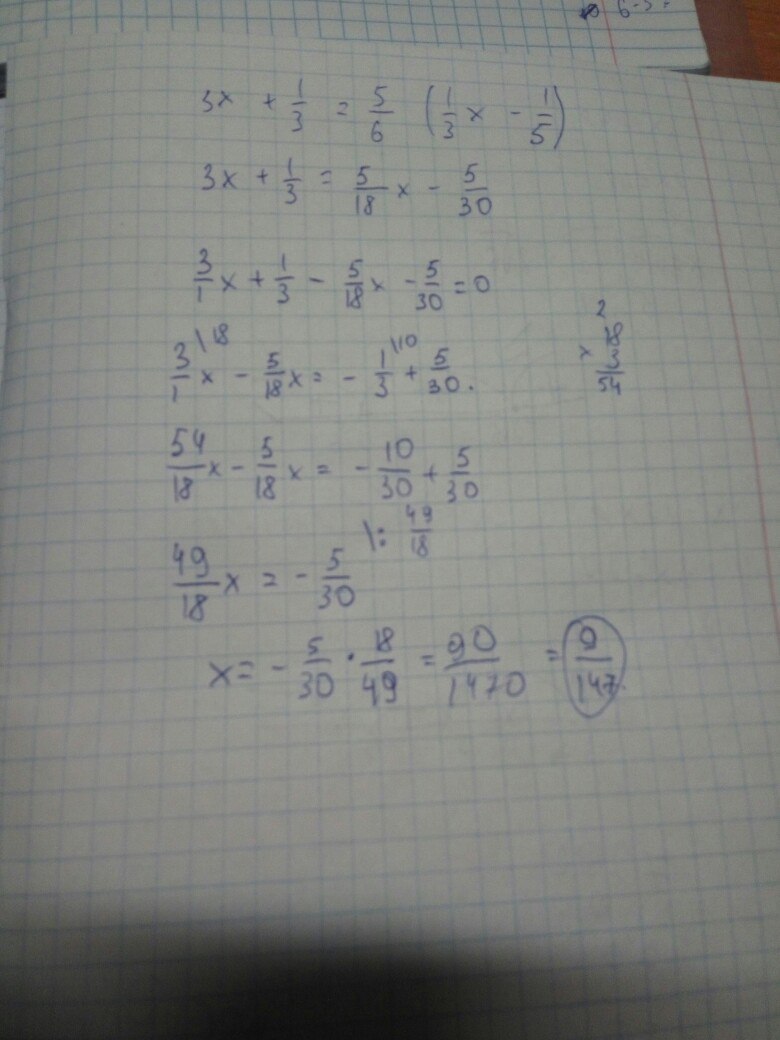 6-5
3x + 1/3 = 5/6 (1/3 x - 1/5)
3x + 1/3 = 5/18 x - 5/30
3/1 x + 1/3 - 5/18 x - 5/30 = 0
3/1 \18 x - 5/18 x = - 1/3 \10 + 5/30.
2
18
× 3
54
54/18 x - 5/18 x = - 10/30 + 5/30
49/18 x = - 5/30 \: 49/18
x = - 5/30 · 18/49 = 90/1470 = 9/147